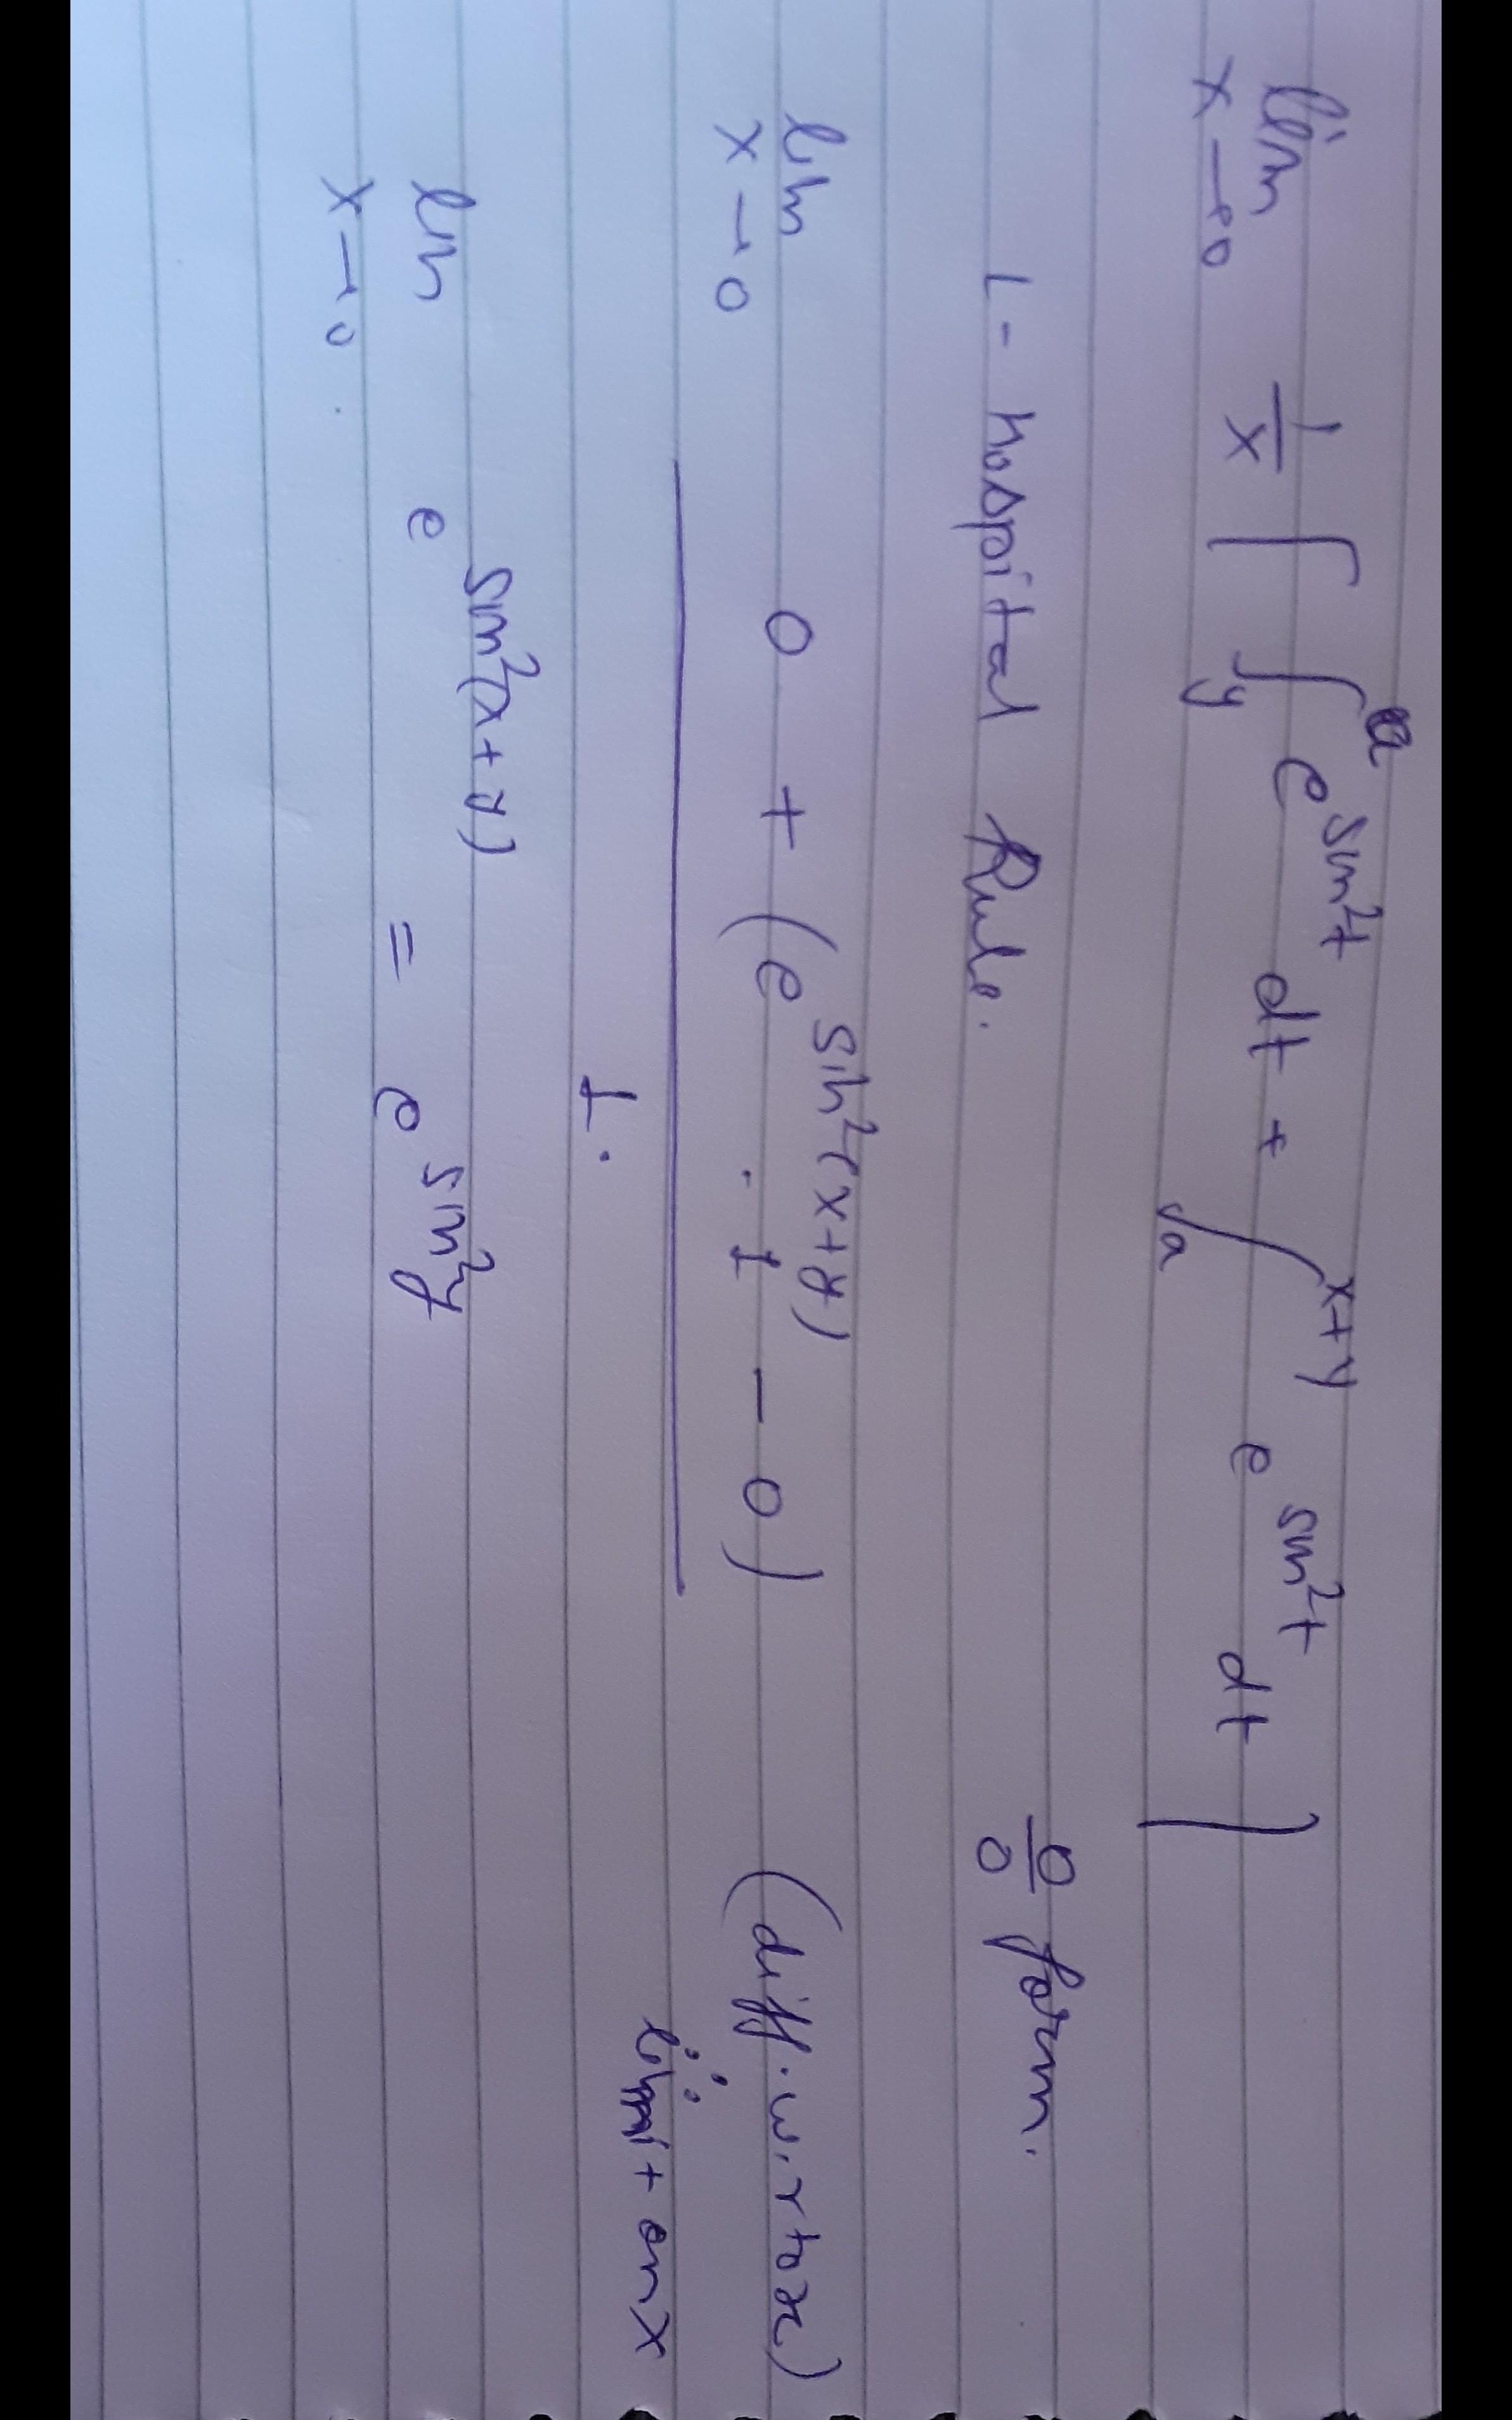 lim x→0 1/x [ ∫_y^a e^{sin²t} dt + ∫_a^{x+y} e^{sin²t} dt ]
0/0 form.
L-hospital Rule.
lim x→0 0 + (e^{sin²(x+y)} . 1 - 0) (diff. w.r to x)
1. ∵ limit on x
lim x→0. e^{sin²(x+y)} = e^{sin²y}